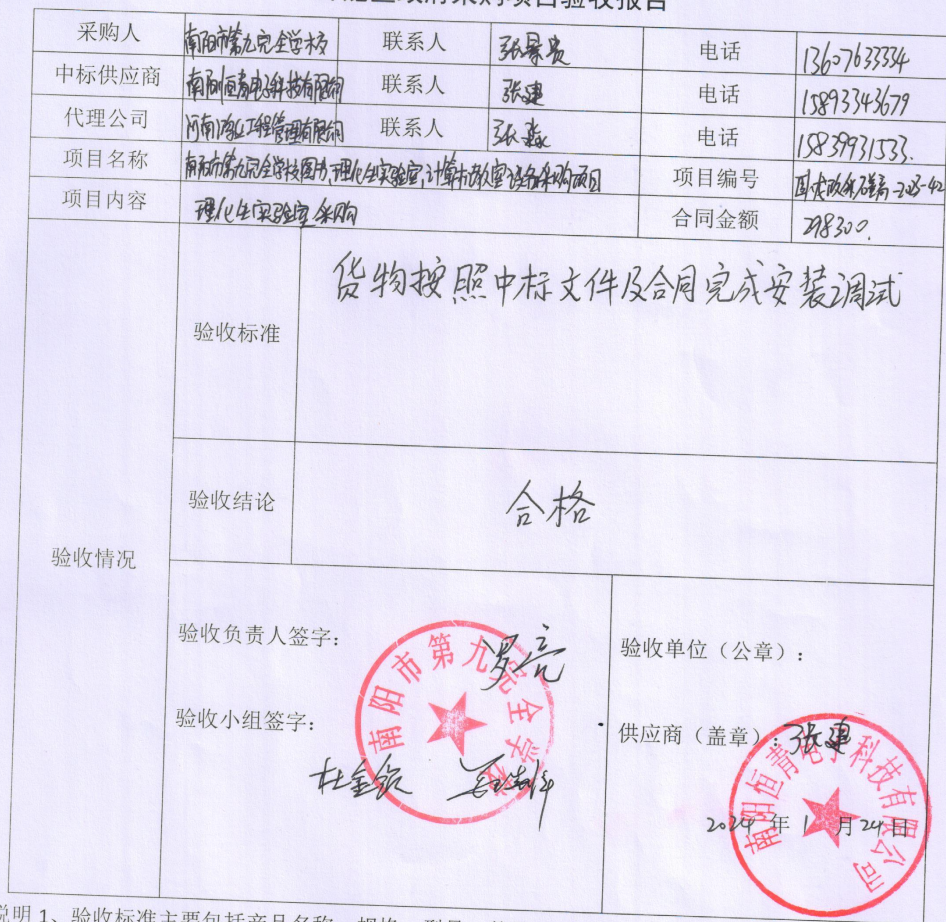 政府采购项目验收报告
采购人 南阳市第九完全学校 联系人 张景贵 电话 13607633334
中标供应商 南阳恒青电子科技有限公司 联系人 张建 电话 15893343679
代理公司 河南 工程管理有限公司 联系人 张淼 电话 15839931533.
项目名称 南阳市第九完全学校图书,理化生实验室,计算机教室设备采购项目 项目编号
项目内容 理化生实验室采购 合同金额 298300.
验收情况
验收标准 货物按照中标文件及合同完成安装调试
验收结论 合格
验收负责人签字: 罗亮
验收小组签字:
杜金钦
南阳市第九完全学校
验收单位（公章）:
供应商（盖章）: 张建
南阳恒青电子科技有限公司
2024 年 1 月 24 日
说明 1、验收标准主要包括产品名称、规格、型号